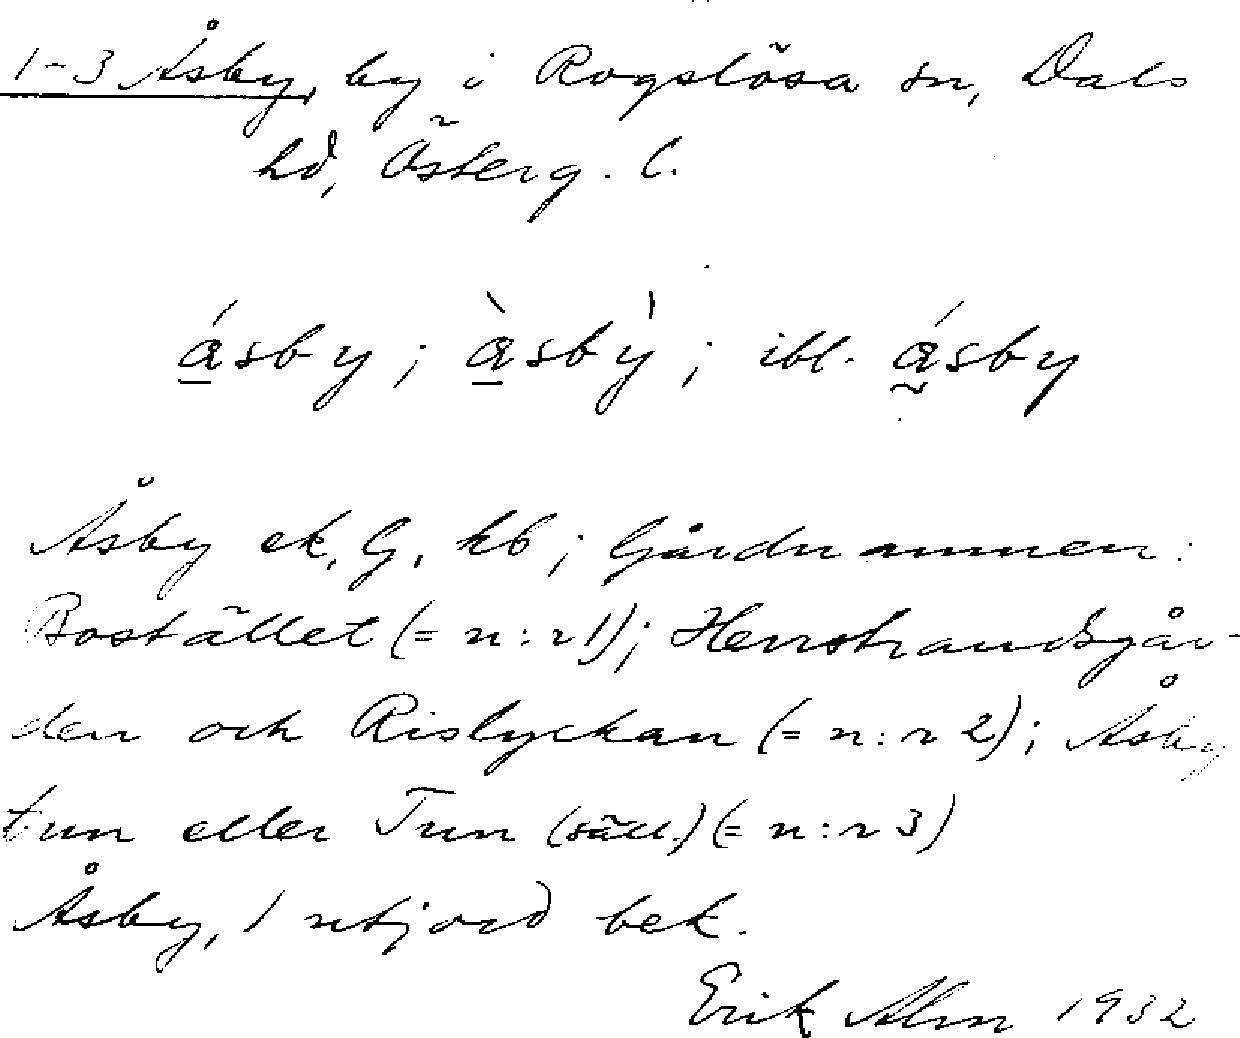 1-3 Åsby, by i Rogslösa sn, Dals
hd, Österg. l.
á̱sby; à̱sbỳ; ibl. á̰sby
Åsby ek, G, kb; Gårdnamnen:
Bostället (= n:r 1); Herrstrandsgår-
den och Rislyckan (= n:r 2); Åsby
tun eller Tun (säll.) (= n:r 3)
Åsby, 1 utjord bek.
Erik Alm 1932